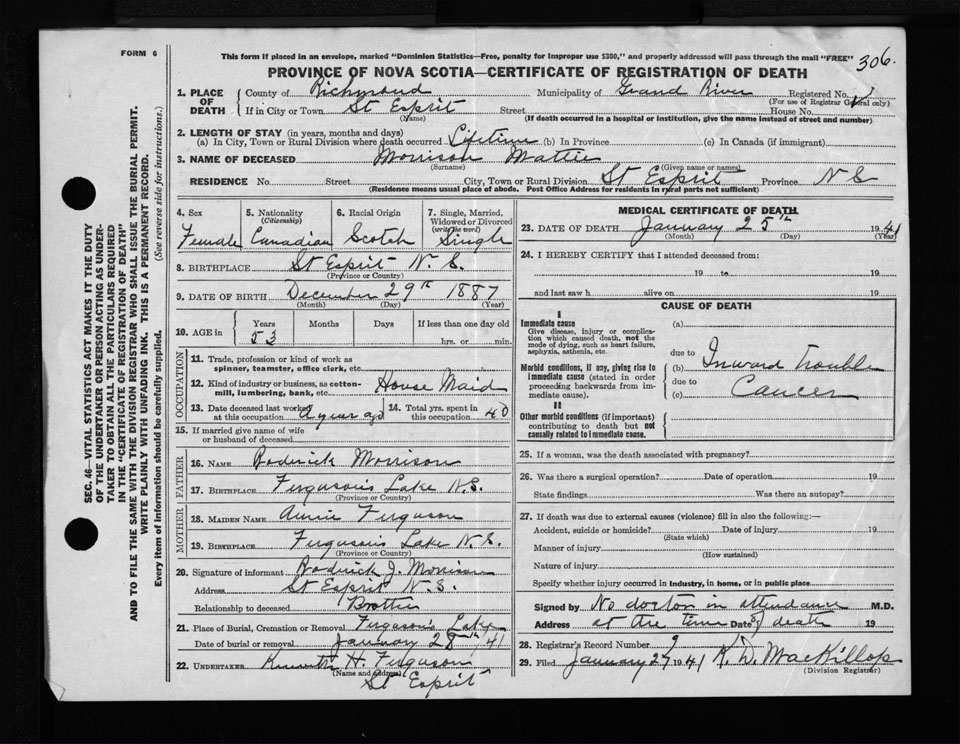 FORM 6
This form if placed in an envelope, marked "Dominion Statistics—Free, penalty for improper use $300," and properly addressed will pass through the mail "FREE" 306.
PROVINCE OF NOVA SCOTIA—CERTIFICATE OF REGISTRATION OF DEATH
SEC. 46—VITAL STATISTICS ACT MAKES IT THE DUTY
OF THE UNDERTAKER OR PERSON ACTING AS UNDER-
TAKER TO OBTAIN ALL THE PARTICULARS REQUIRED
IN THE "CERTIFICATE OF REGISTRATION OF DEATH"
AND TO FILE THE SAME WITH THE DIVISION REGISTRAR WHO SHALL ISSUE THE BURIAL PERMIT.
WRITE PLAINLY WITH UNFADING INK. THIS IS A PERMANENT RECORD.
Every item of information should be carefully supplied. (See reverse side for instructions.)
1. PLACE OF DEATH County of Richmond Municipality of Grand River Registered No.
(For use of Registrar General only)
If in City or Town St Esprit Street House No.
(Name) (If death occurred in a hospital or institution, give the name instead of street and number)
2. LENGTH OF STAY (in years, months and days)
(a) In City, Town or Rural Division where death occurred Lifetime (b) In Province (c) In Canada (if immigrant)
3. NAME OF DECEASED Morrison Mattie
(Surname) (Given name or names)
RESIDENCE No. Street City, Town or Rural Division St Esprit Province N S
(Residence means usual place of abode. Post Office Address for residents in rural parts not sufficient)
4. Sex 5. Nationality (Citizenship) 6. Racial Origin 7. Single, Married, Widowed or Divorced (write the word)
Female Canadian Scotch Single
8. BIRTHPLACE St Esprit N. S.
(Province or Country)
9. DATE OF BIRTH December 29th 1887
(Month) (Day) (Year)
10. AGE in Years Months Days If less than one day old
53 hrs. or min.
OCCUPATION
11. Trade, profession or kind of work as
spinner, teamster, office clerk, etc.
12. Kind of industry or business, as cotton-
mill, lumbering, bank, etc. House Maid
13. Date deceased last worked at this occupation A year ago 14. Total yrs. spent in this occupation 40
15. If married give name of wife
or husband of deceased
FATHER
16. NAME Roderick Morrison
17. BIRTHPLACE Ferguson's Lake N.S.
(Province or Country)
MOTHER
18. MAIDEN NAME Annie Ferguson
19. BIRTHPLACE Ferguson's Lake N.S.
(Province or Country)
20. Signature of informant Roderick J. Morrison
Address St Esprit N. S.
Relationship to deceased Brother
21. Place of Burial, Cremation or Removal Ferguson's Lake
Date of burial or removal January 28th 41
22. UNDERTAKER Kenneth H. Ferguson
(Name and address)
St Esprit
MEDICAL CERTIFICATE OF DEATH
23. DATE OF DEATH January 25th 1941
(Month) (Day) (Year)
24. I HEREBY CERTIFY that I attended deceased from:
19 to 19
and last saw h alive on 19
CAUSE OF DEATH
I
Immediate cause (a)
Give disease, injury or complica-
tion which caused death, not the
mode of dying, such as heart failure,
asphyxia, asthenia, etc.
due to
Morbid conditions, if any, giving rise to
immediate cause (stated in order
proceeding backwards from im-
mediate cause).
(b) Inward trouble
due to
(c) Cancer
II
Other morbid conditions (if important)
contributing to death but not
causally related to immediate cause.
25. If a woman, was the death associated with pregnancy?
26. Was there a surgical operation? Date of operation 19
State findings Was there an autopsy?
27. If death was due to external causes (violence) fill in also the following:—
Accident, suicide or homicide? Date of injury 19
(State which)
Manner of injury
(How sustained)
Nature of injury
Specify whether injury occurred in industry, in home, or in public place
Signed by No doctor in attendance M.D.
Address at the time of death Date 19
28. Registrar's Record Number 9
29. Filed January 27 1941 K. D. MacKillop
(Division Registrar)